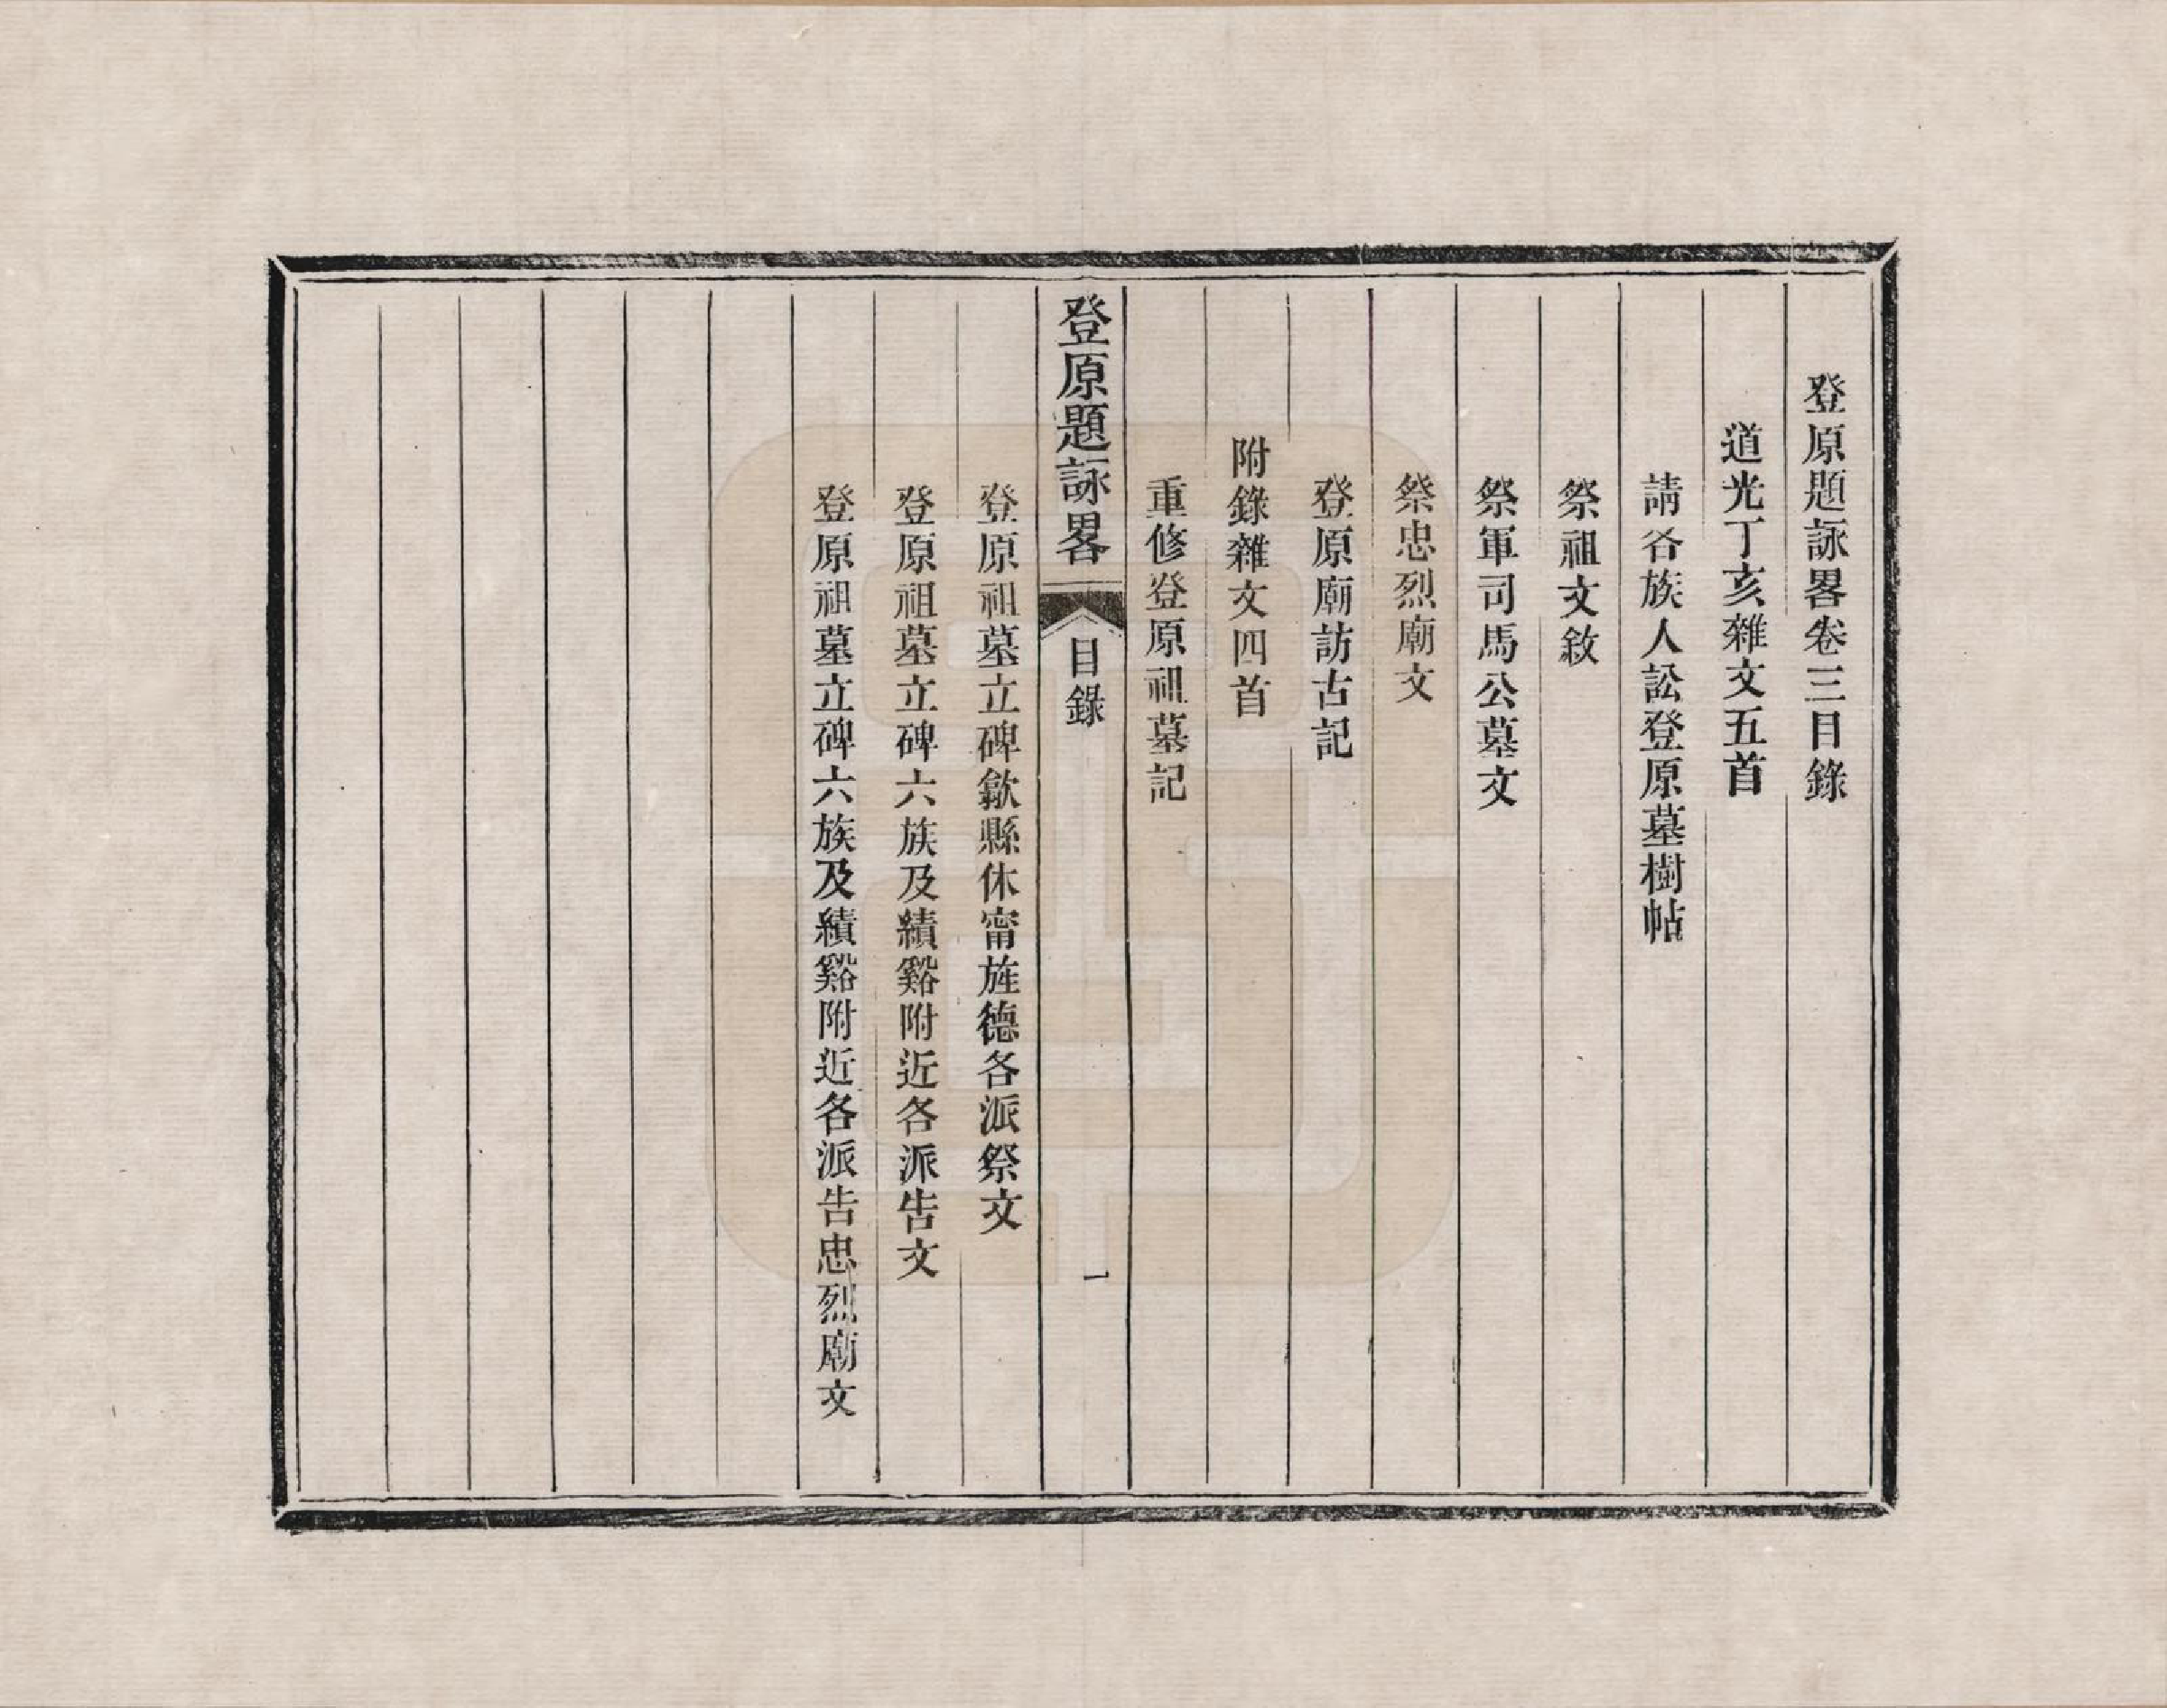 登原題詠畧卷三目錄
道光丁亥雜文五首
請各族人訟登原墓樹帖
祭祖文敘
祭軍司馬公墓文
祭忠烈廟文
登原廟訪古記
附錄雜文四首
重修登原祖墓記
登原題詠畧 目錄 一
登原祖墓立碑歙縣休甯旌德各派祭文
登原祖墓立碑六族及績谿附近各派告文
登原祖墓立碑六族及績谿附近各派告忠烈廟文